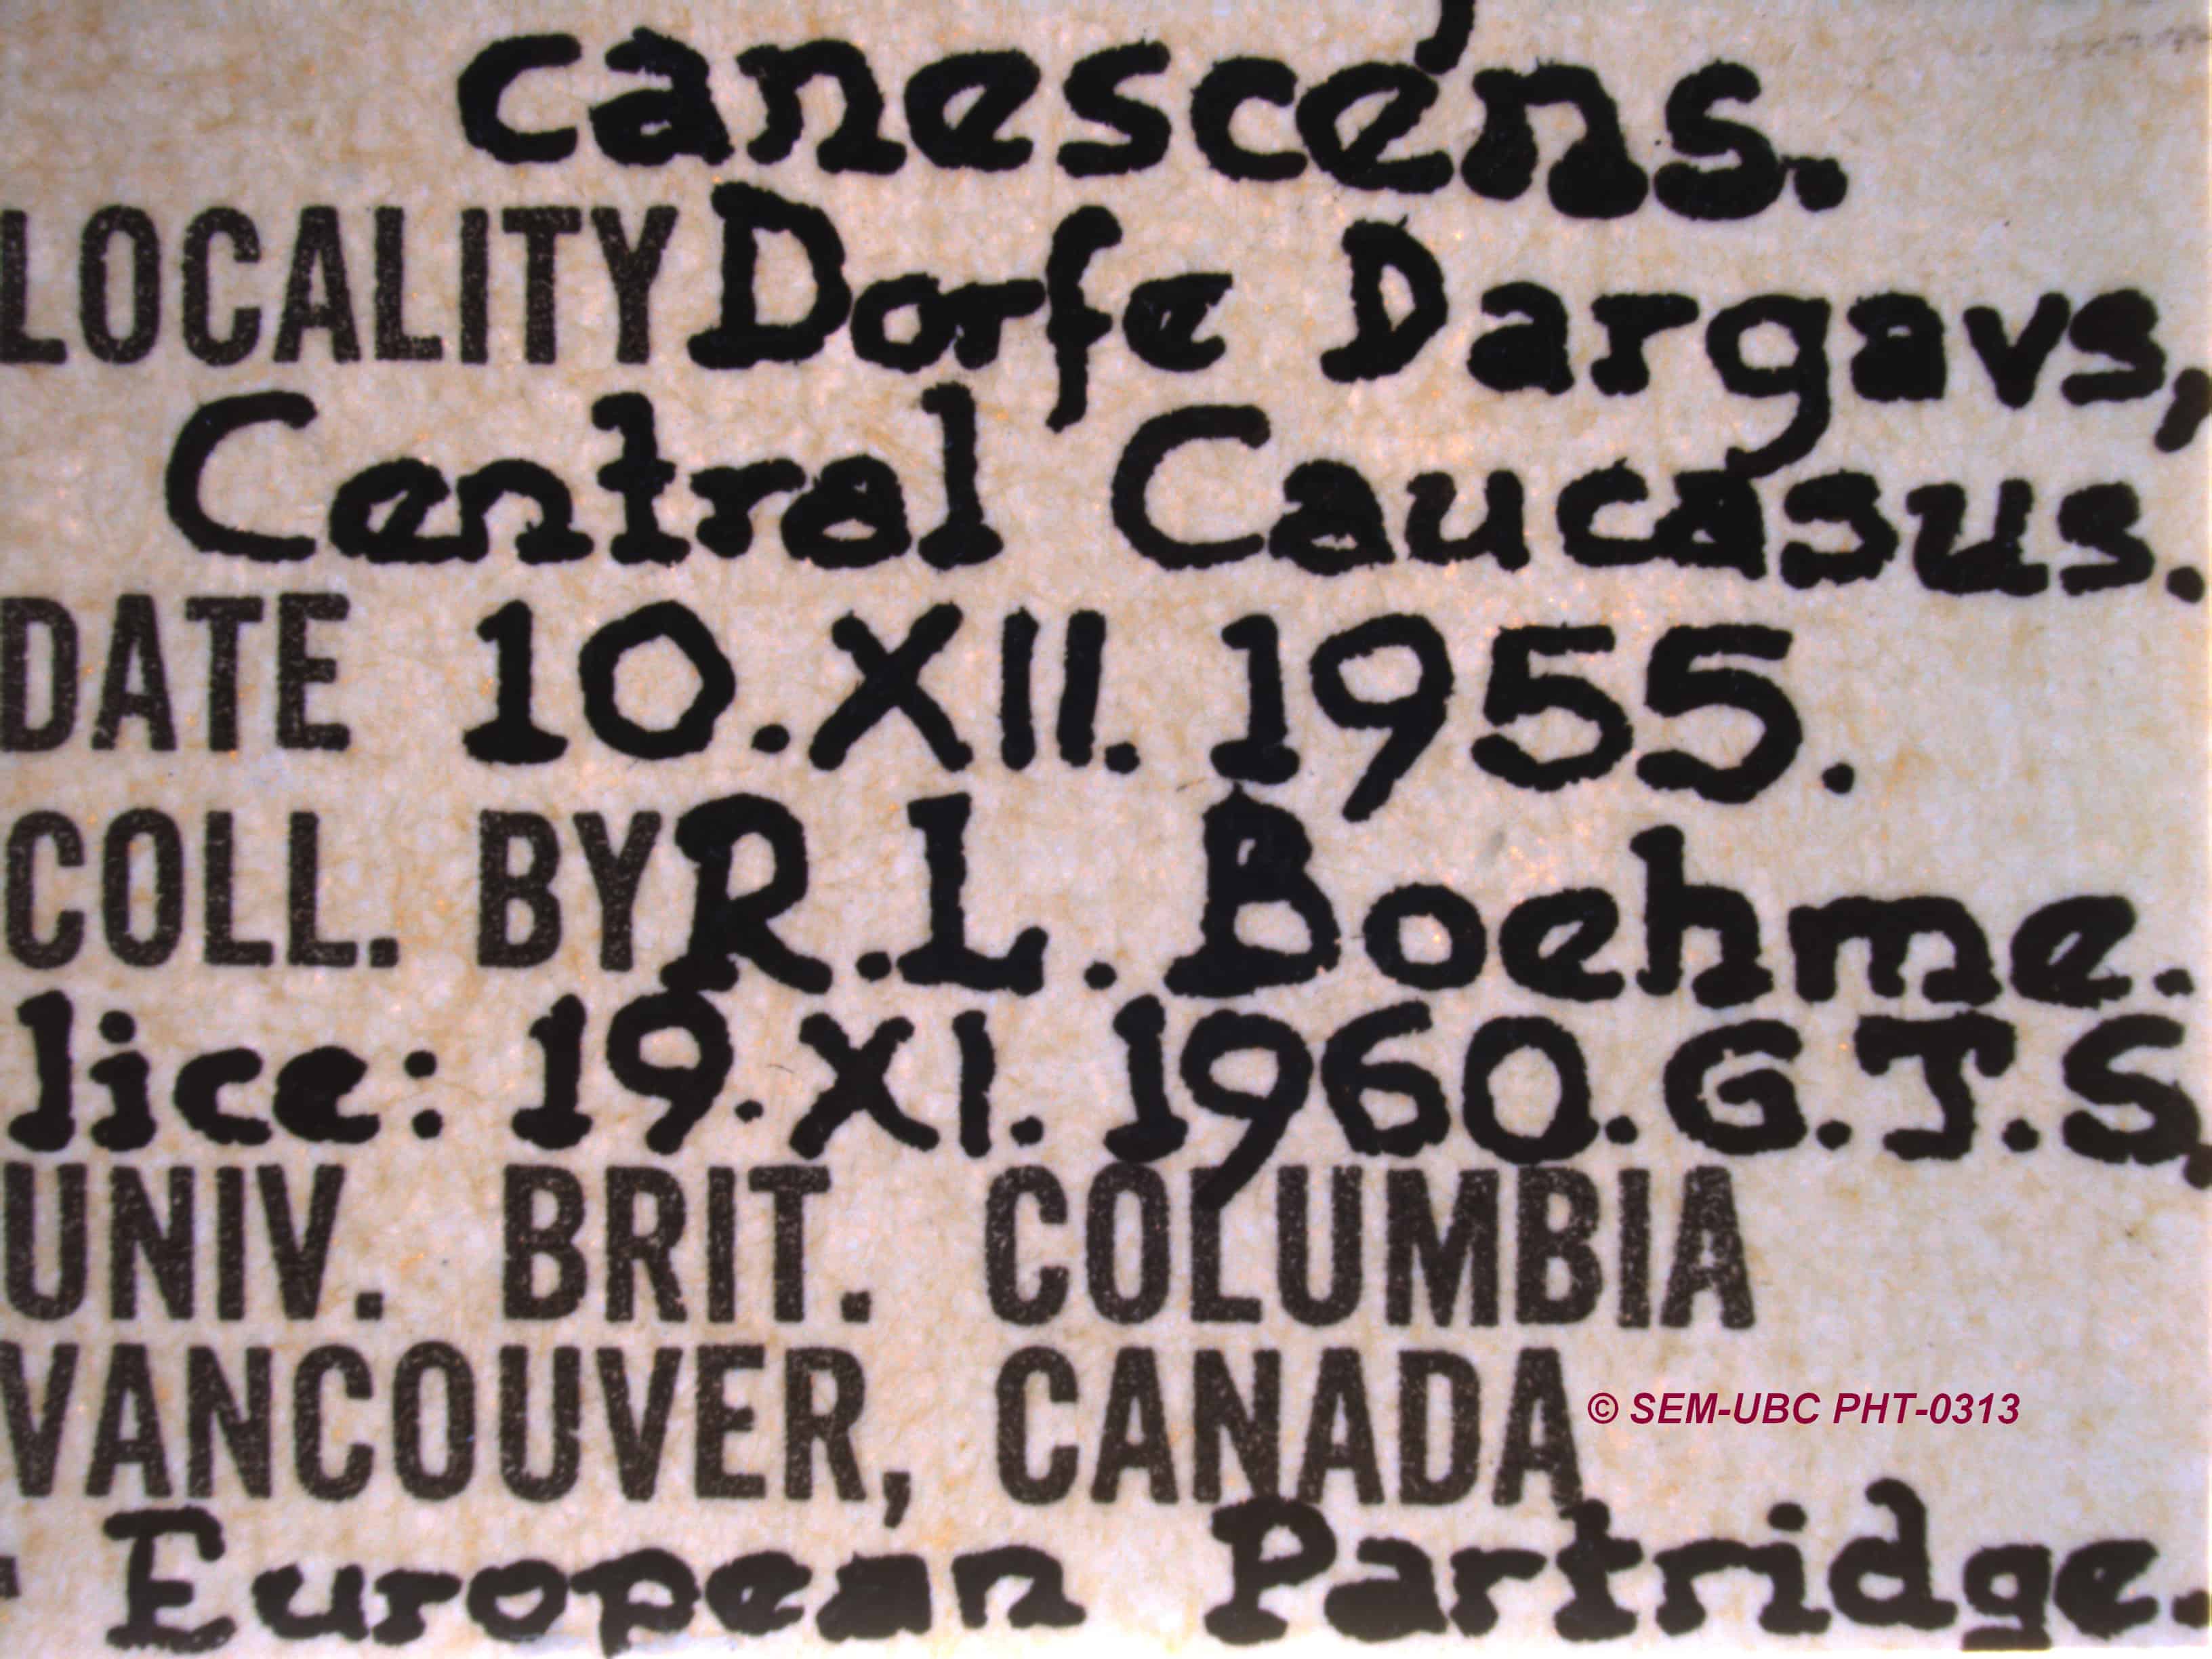 canescens.
LOCALITY Dorfe Dargavs,
Central Caucasus.
DATE 10.XII. 1955.
COLL. BY R.L. Boehme.
lice: 19.XI. 1960. G.T.S.
UNIV. BRIT. COLUMBIA
VANCOUVER, CANADA
© SEM-UBC PHT-0313
European Partridge.